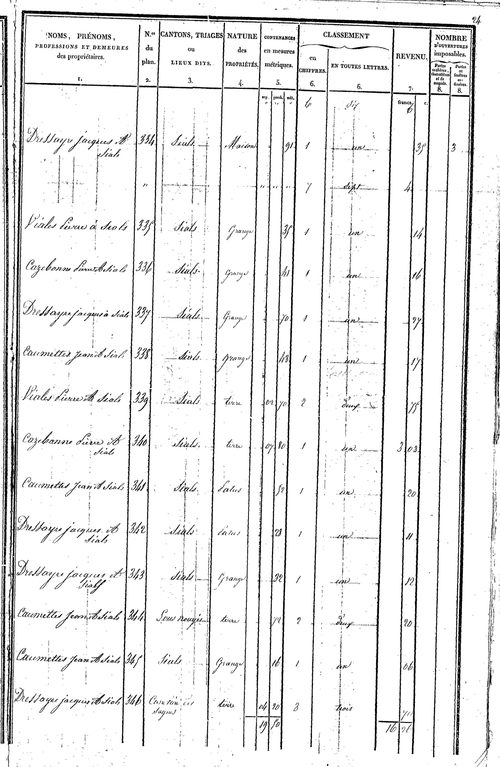 24
NOMS, PRÉNOMS, PROFESSIONS ET DEMEURES des propriétaires. 1.
N.os du plan. 2.
CANTONS, TRIAGES ou LIEUX DITS. 3.
NATURE des PROPRIÉTÉS. 4.
CONTENANCES en mesures métriques. 5.
CLASSEMENT
en CHIFFRES. 6.
EN TOUTES LETTRES. 6.
REVENU. 7.
NOMBRE D'OUVERTURES imposables.
8. 8.
6 six francs. c. 6
Dressayre jacques A Sials 334 Sials Maison 91 1 un 35 3
" 7 sept 4
Viales Pierre à Sials 335 Sials Grange 35 1 un 14
Cazebonne Pierre A Sials 336 Sials Grange 41 1 un 16
Dressayre jacques à Sials 337 Sials Grange 70 1 un 27
Caumettes jean A Sials 338 Sials Grange 43 1 un 17
Viales Pierre A Sials 339 Sials terre 02 70 2 deux 75
Cazebonne Pierre A Sials 340 Sials terre 07 80 1 un 3 03
Caumettes jean A Sials 341 Sials Patus 52 1 un 20
Dressayre jacques A Sials 342 Sials Patus 29 1 un 11
Dressayre jacques A Sials 343 Sials Grange 32 1 un 12
Caumettes jean A Sials 344 terre 72 2 deux 20
Caumettes jean A Sials 345 Sials Grange 16 1 un 06
Dressayre jacques A Sials 346 terre 04 20 3 trois
19 50 16